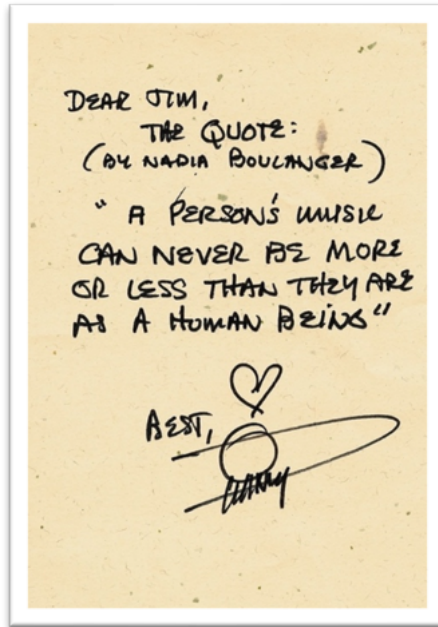 DEAR JIM,
THE QUOTE:
(BY NADIA BOULANGER)
" A PERSON'S MUSIC
CAN NEVER BE MORE
OR LESS THAN THEY ARE
AS A HUMAN BEING"
BEST,